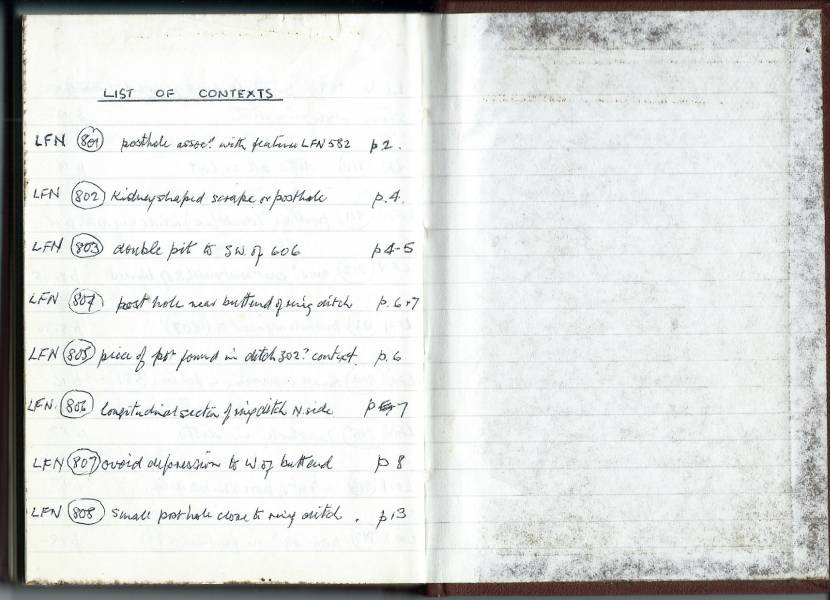 LIST OF CONTEXTS
LFN 801 posthole assoc. with feature LFN 582 p 2.
LFN 802 Kidney shaped scrape or posthole p.4.
LFN 803 double pit to SW. of 606 p 4-5
LFN 804 post hole near buttend of ring ditch p. 6+7
LFN 805 piece of pot found in ditch 302? context. p. 6
LFN. 806 longitudinal section of ring ditch N. side p 7
LFN 807 ovoid depression to W of buttend p 8
LFN 808 small posthole close to ring ditch. p 13